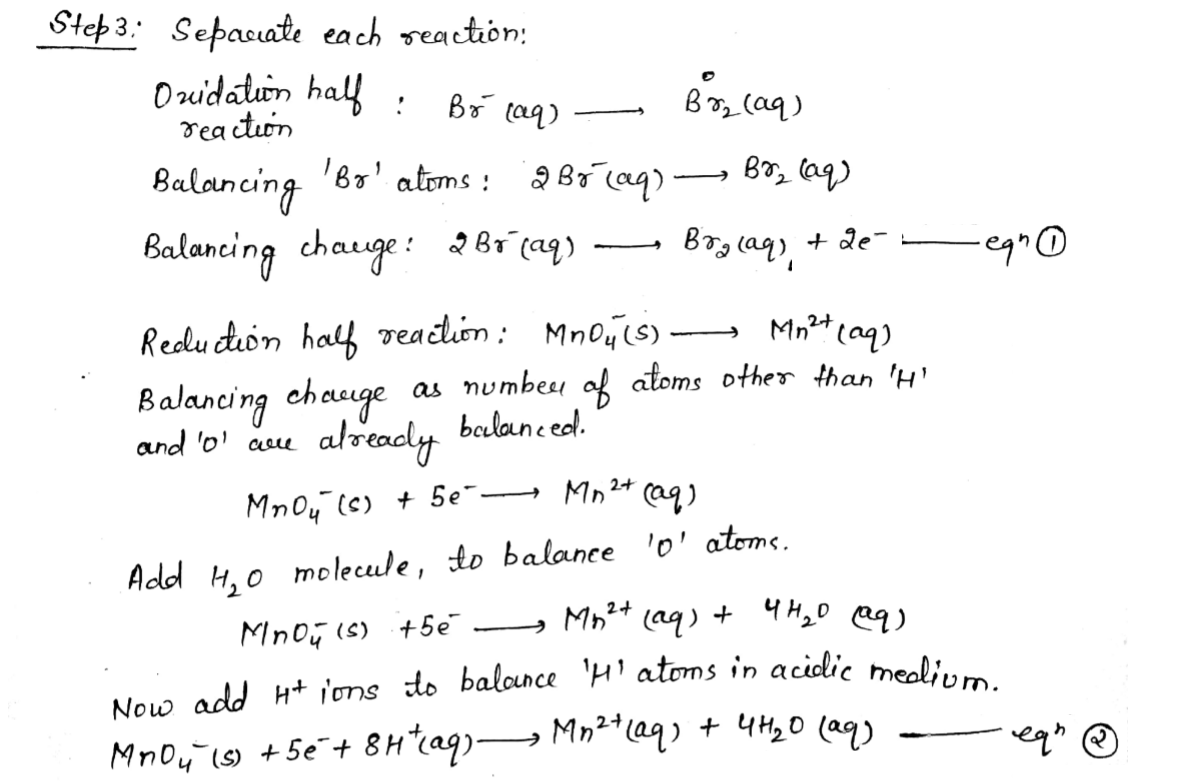 Step 3: Separate each reaction:
Oxidation half reaction : Br⁻ (aq) ⟶ B⁰r₂ (aq)
Balancing 'Br' atoms : 2Br⁻(aq) ⟶ Br₂ (aq)
Balancing charge: 2Br⁻(aq) ⟶ Br₂ (aq), + 2e⁻ —— eqⁿ ①
Reduction half reaction : MnO₄⁻(s) ⟶ Mn²⁺ (aq)
Balancing charge as number of atoms other than 'H'
and 'O' are already balanced.
MnO₄⁻ (s) + 5e⁻ ⟶ Mn²⁺ (aq)
Add H₂O molecule, to balance 'O' atoms.
MnO₄⁻ (s) +5e⁻ ⟶ Mn²⁺ (aq) + 4H₂O (aq)
Now add H⁺ ions to balance 'H' atoms in acidic medium.
MnO₄⁻ (s) +5e⁻ + 8H⁺(aq) ⟶ Mn²⁺(aq) + 4H₂O (aq) —— eqⁿ ②